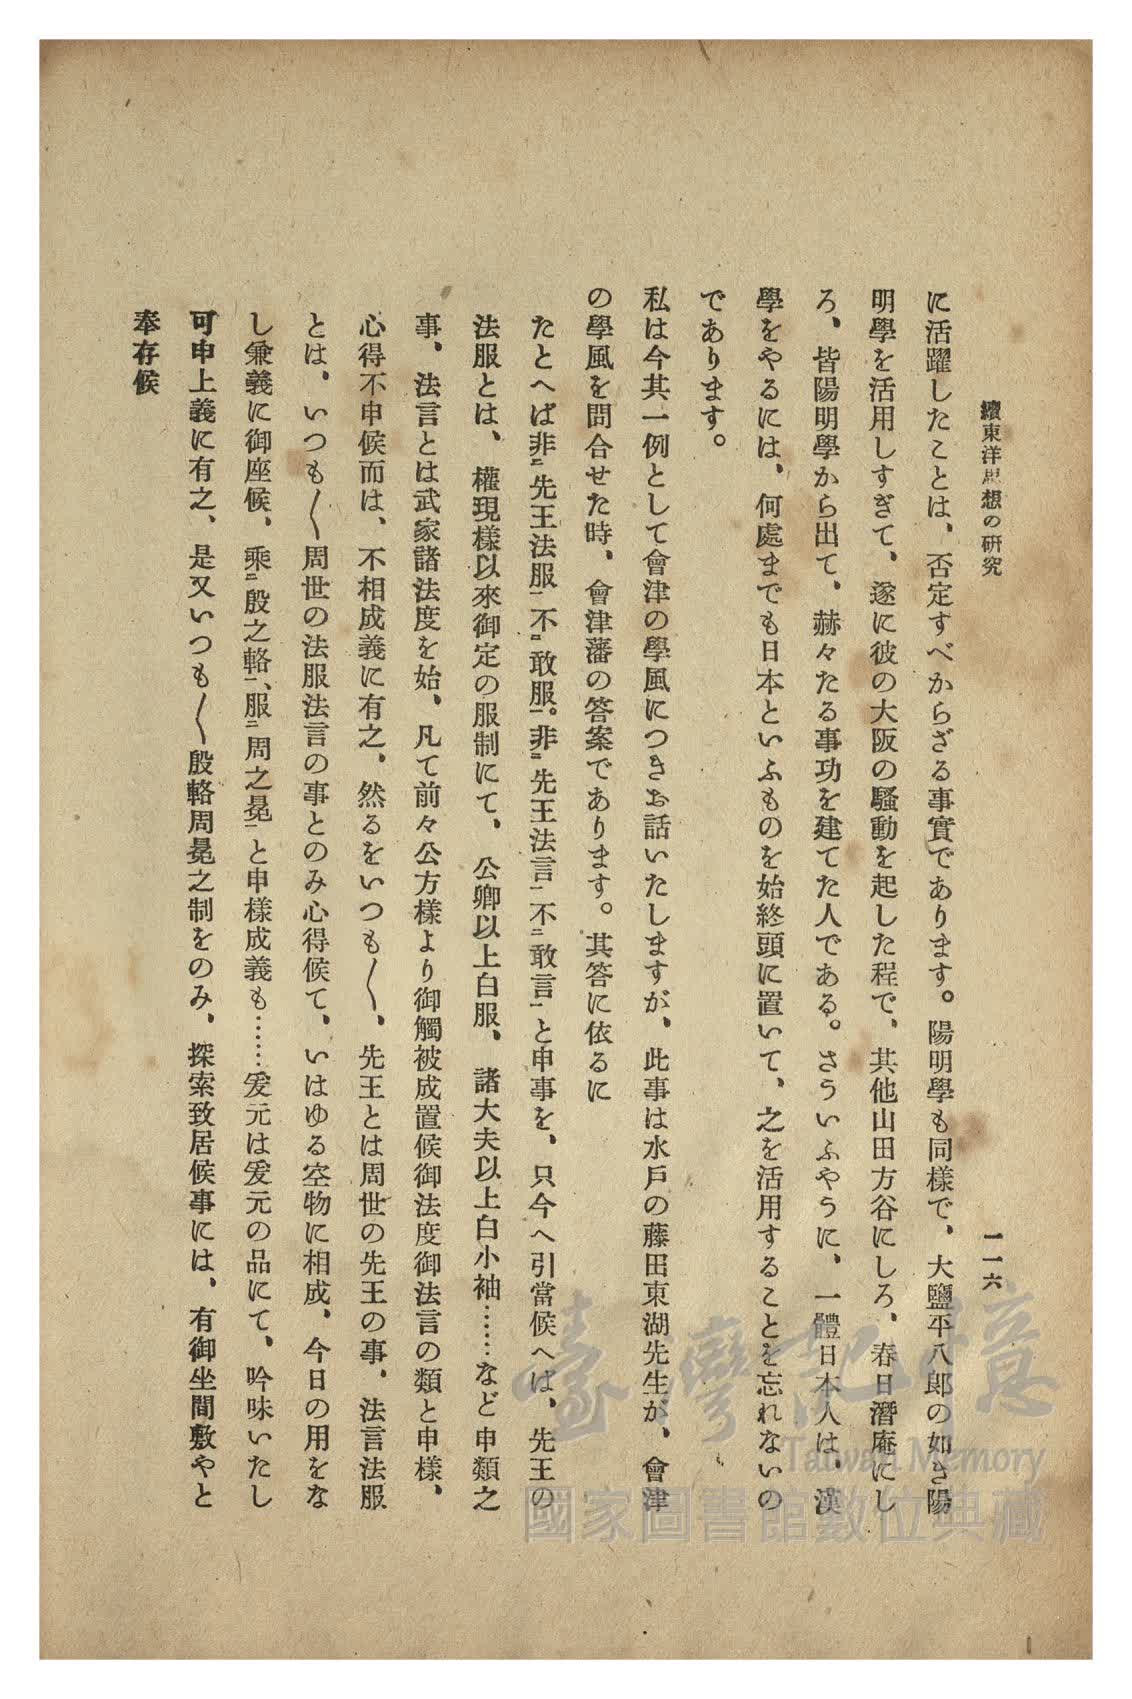 續東洋思想の研究
一一六
に活躍したことは、否定すべからざる事實であります。陽明學も同樣で、大鹽平八郎の如き陽
明學を活用しすぎて、遂に彼の大阪の騷動を起した程で、其他山田方谷にしろ、春日潛庵にし
ろ、皆陽明學から出て、赫々たる事功を建てた人である。さういふやうに、一體日本人は、漢
學をやるには、何處までも日本といふものを始終頭に置いて、之を活用することを忘れないの
であります。
私は今其一例として會津の學風につきお話いたしますが、此事は水戶の藤田東湖先生が、會津
の學風を問合せた時、會津藩の答案であります。其答に依るに
たとへば非㆓先王法服㆒不㆓敢服㆒。非㆓先王法言㆒不㆓敢言㆒と申事を、只今へ引當候へは、先王の
法服とは、權現樣以來御定の服制にて、公卿以上白服、諸大夫以上白小袖……など申類之
事、法言とは武家諸法度を始、凡て前々公方樣より御觸被成置候御法度御法言の類と申樣、
心得不申候而は、不相成義に有之、然るをいつも〱、先王とは周世の先王の事、法言法服
とは、いつも〱周世の法服法言の事とのみ心得候て、いはゆる空物に相成、今日の用をな
し兼義に御座候、乘㆓殷之輅㆒、服㆓周之冕㆒と申樣成義も……爰元は爰元の品にて、吟味いたし
可申上義に有之、是又いつも〱殷輅周冕之制をのみ、探索致居候事には、有御坐間敷やと
奉存候
臺灣記憶
Taiwan Memory
國家圖書館數位典藏